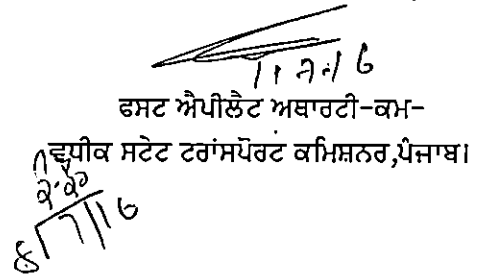 11.7.16
ਫਸਟ ਐਪੀਲੈਟ ਅਥਾਰਟੀ-ਕਮ-
ਵਧੀਕ ਸਟੇਟ ਟਰਾਂਸਪੋਰਟ ਕਮਿਸ਼ਨਰ,ਪੰਜਾਬ।
8/7/16